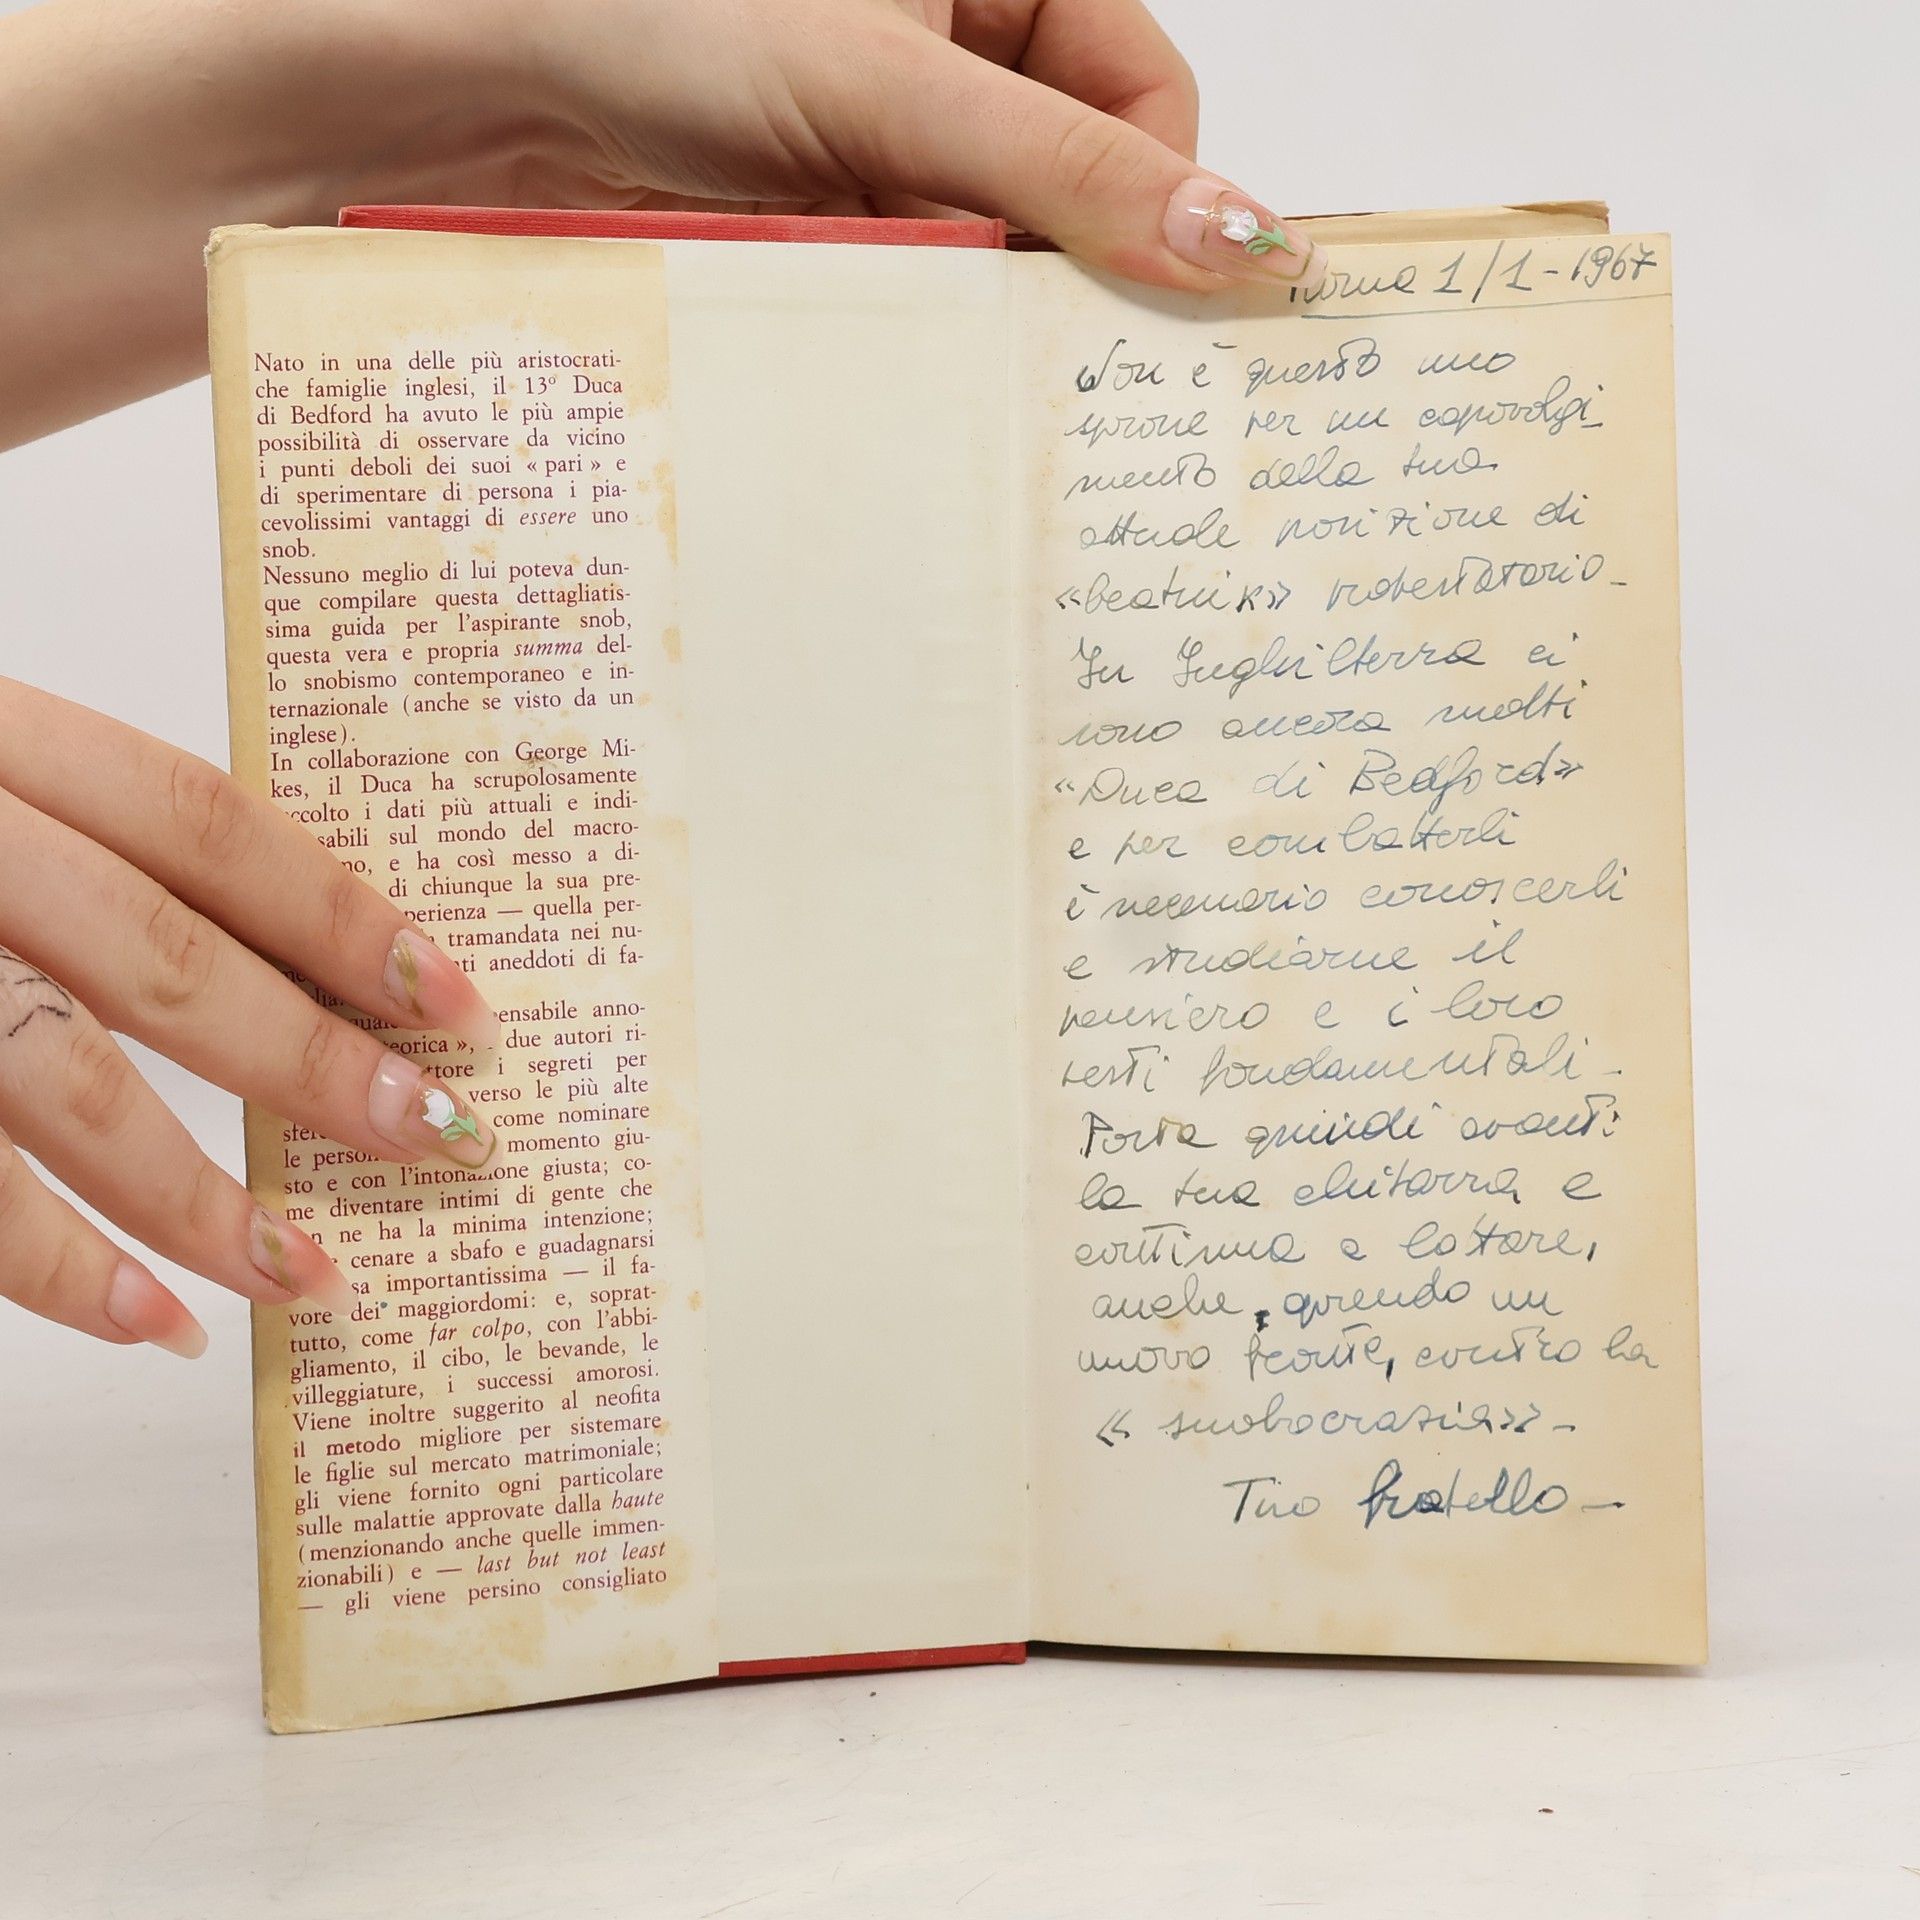 Nato in una delle più aristocrati-
che famiglie inglesi, il 13º Duca
di Bedford ha avuto le più ampie
possibilità di osservare da vicino
i punti deboli dei suoi « pari » e
di sperimentare di persona i pia-
cevolissimi vantaggi di essere uno
snob.
Nessuno meglio di lui poteva dun-
que compilare questa dettagliatis-
sima guida per l'aspirante snob,
questa vera e propria summa del-
lo snobismo contemporaneo e in-
ternazionale (anche se visto da un
inglese).
In collaborazione con George Mi-
kes, il Duca ha scrupolosamente
ccolto i dati più attuali e indi-
sabili sul mondo del macro-
no, e ha così messo a di-
di chiunque la sua pre-
perienza — quella per-
tramandata nei nu-
ti aneddoti di fa-
lia.
ensabile anno-
eorica », due autori ri-
ttore i segreti per
verso le più alte
sfere come nominare
le person momento giu-
sto e con l'intonazione giusta; co-
me diventare intimi di gente che
n ne ha la minima intenzione;
cenare a sbafo e guadagnarsi
sa importantissima — il fa-
vore dei maggiordomi: e, soprat-
tutto, come far colpo, con l'abbi-
gliamento, il cibo, le bevande, le
villeggiature, i successi amorosi.
Viene inoltre suggerito al neofita
il metodo migliore per sistemare
le figlie sul mercato matrimoniale;
gli viene fornito ogni particolare
sulle malattie approvate dalla haute
(menzionando anche quelle immen-
zionabili) e — last but not least
— gli viene persino consigliato
Roma 1/1-1967
Non è questo uno
sprone per un capovolgi_
mento della tua
attuale posizione di
«beatnik» protestatario_
In Inghilterra ci
sono ancora molti
«Duca di Bedford»
e per combatterli
è necessario conoscerli
e studiarne il
pensiero e i loro
testi fondamentali_
Porta quindi avanti
la tua chitarra e
continua a lottare,
anche, aprendo un
nuovo fronte, contro la
« snobocrazia»_
Tuo fratello_